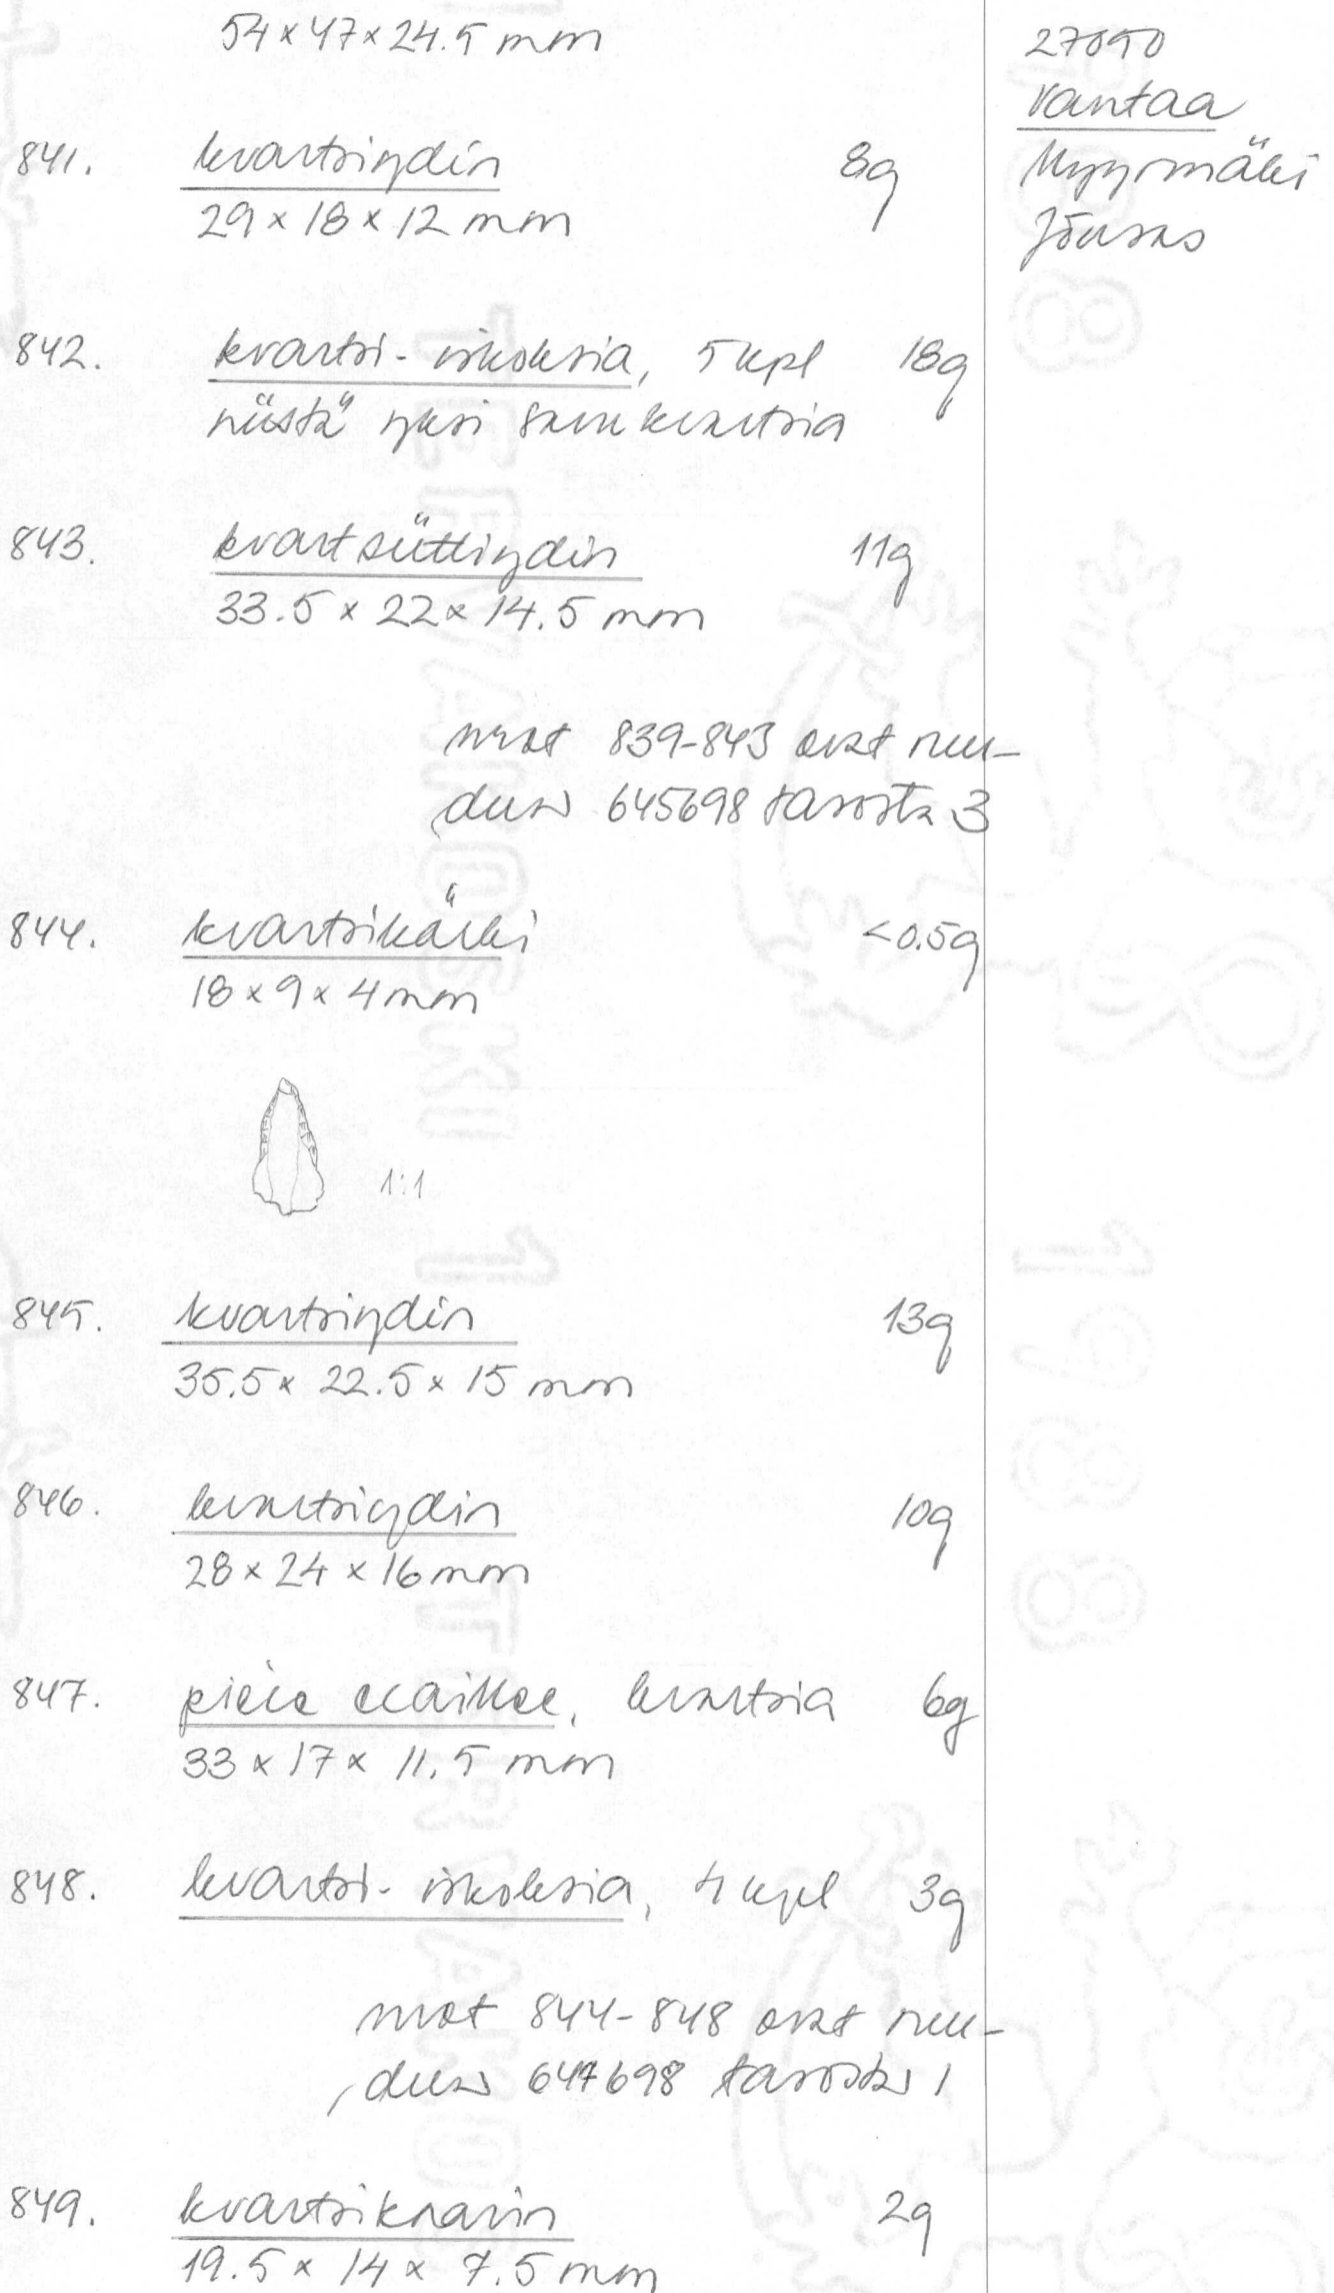 54 x 47 x 24.5 mm
27050
Vantaa
Myyrmäki
Jönsas
841. kvartsiydin 8g
29 x 18 x 12 mm
842. kvartsi-iskoksia, 5 kpl 18g
niistä yksi savukvartsia
843. kvartsiittiydin 11g
33.5 x 22 x 14.5 mm
nrot 839-843 ovat ruu-
dun 645698 tasosta 3
844. kvartsikärki <0.5g
18 x 9 x 4 mm
1:1
845. kvartsiydin 13g
35.5 x 22.5 x 15 mm
846. kvartsiydin 10g
28 x 24 x 16 mm
847. pièce ecaillee, kvartsia 6g
33 x 17 x 11.5 mm
848. kvartsi-iskoksia, 4 kpl 3g
nrot 844-848 ovat ruu-
dun 647698 tasosta 1
849. kvartsikaavin 2g
19.5 x 14 x 7.5 mm